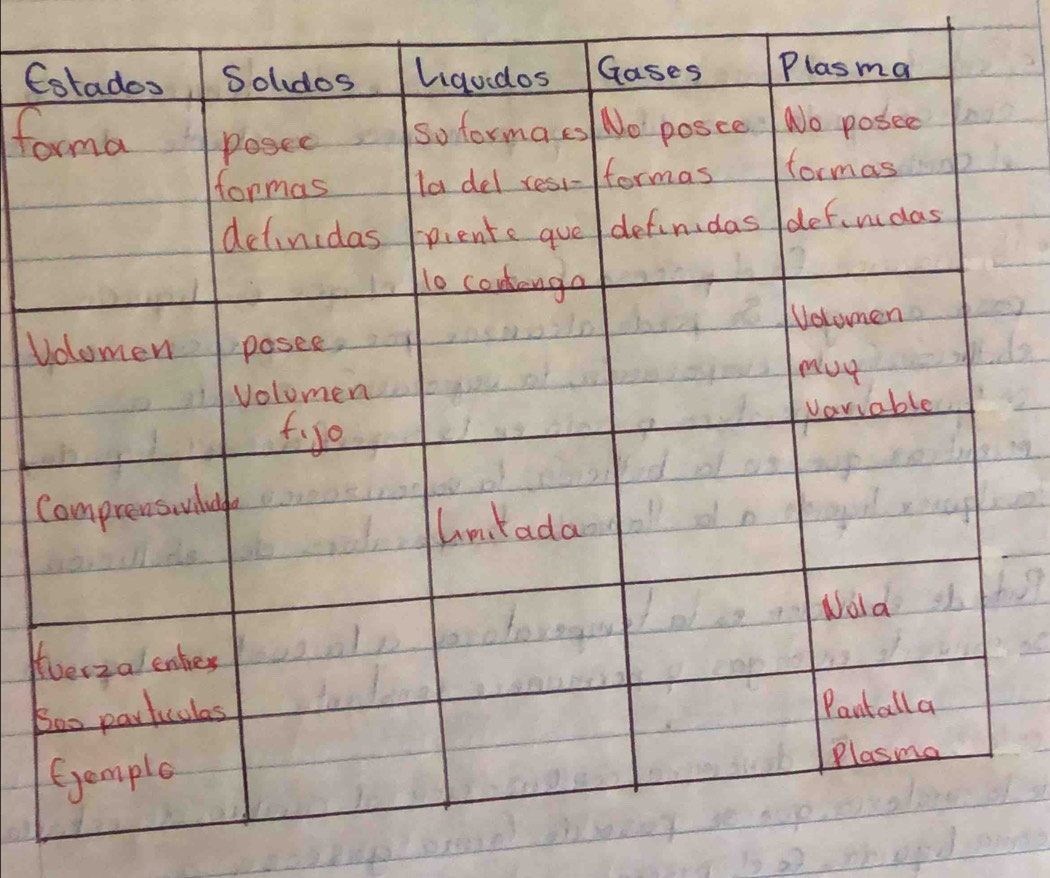 Estados Solidos Liquidos Gases Plasma
forma
posee
formas
definidas
Su forma es
la del resi-
piente que
lo contenga
No posee
formas
definidas
No posee
formas
definidas
Volumen
posee
Volumen
fijo
Volumen
muy
variable
Comprensividad
Limitada
fuerza entre
sus particulas
Nula
Ejemplo
Pantalla
Plasma